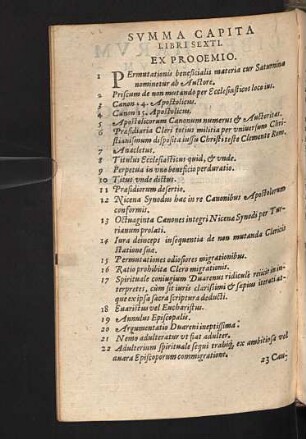 SVMMA CAPITA
LIBRI SEXTI.
EX PROOEMIO.
1 PErmutationis beneficialis materia cur Saturnina
nominetur ab Auctore.
2 Priscum de non mutando per Ecclesiasticos loco ius.
3 Canon 14. Apostolicus.
4 Canon 15. Apostolicus.
5 Apostolicorum Canonum numerus & Auctoritas.
6 Præsidiaria Cleri totius militia per vniuersum Chri-
stianismum disposita iussu Christi teste Clemente Rom.
7 Anacletus.
8 Titulus Ecclesiasticus quid, & vnde.
9 Perpetua in vno beneficio perduratio.
10 Titus vnde dictus.
11 Præsidiorum desertio.
12 Nicena Synodus hac in re Canonibus Apostolorum
conformis.
13 Octuaginta Canones integri Nicenæ Synodi per Tur-
rianum prolati.
14 Iura deinceps insequentia de non mutanda Clericis
statione sua.
15 Permutationes odiosores migrationibus.
16 Ratio prohibitæ Cleri migrationis.
17 Spirituale coniugium Duarenus ridiculè reiicit in in-
terpretes, cùm sit iuris clarissimi & sæpius iterati at-
que ex ipsa sacra scriptura deducti.
18 Euaristus vel Eucharistus.
19 Annulus Episcopalis.
20 Argumentatio Duareni ineptissima.
21 Nemo adulteratur vt fiat adulter.
22 Adulterium spirituale sequi trahiq́, ex ambitiosa vel
auara Episcoporum commigratione.
23 Cau-